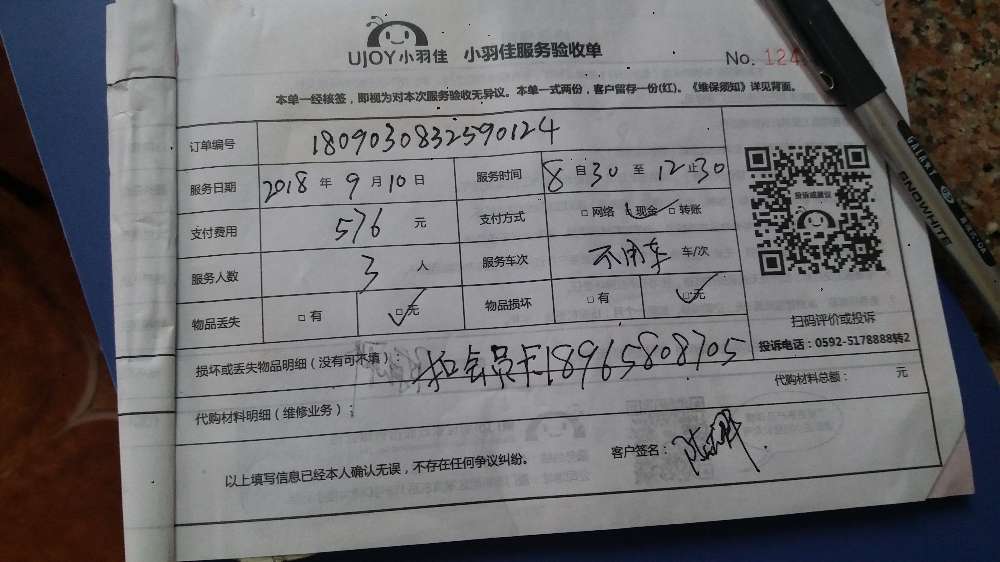 UJOY小羽佳 小羽佳服务验收单
No. 124
本单一经核签，即视为对本次服务验收无异议。本单一式两份，客户留存一份(红)。《维保须知》详见背面。
订单编号 1809030832590124
服务日期 2018 年 9 月 10 日 服务时间 8 自 30 至 12 止 30
支付费用 576 元 支付方式 □ 网络 □ 现金 □ 转账
服务人数 3 人 服务车次 不用车 车/次
物品丢失 □ 有 □ 无 物品损坏 □ 有 □ 无
投诉或建议
扫码评价或投诉
投诉电话：0592-5178888转2
损坏或丢失物品明细（没有可不填）： 扣会员卡18965808705
代购材料明细（维修业务）： 代购材料总额： 元
以上填写信息已经本人确认无误，不存在任何争议纠纷。 客户签名：
SNOWHITE